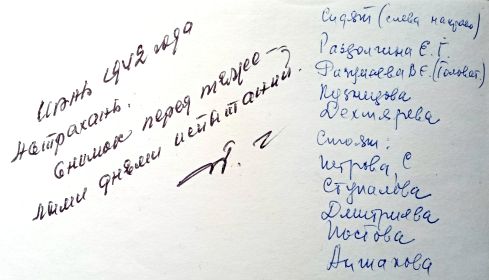 Июнь 1942 года
Астрахань.
Снимок перед тяже-
лыми днями испытаний.
Сидят (слева направо)
Раздолгина Е. Г.
В Е. (Головат.)
Кузнецова
Дехтярева
Стоят:
Петрова, С
Ступалова
Дмитриева
Постова
Аишахова